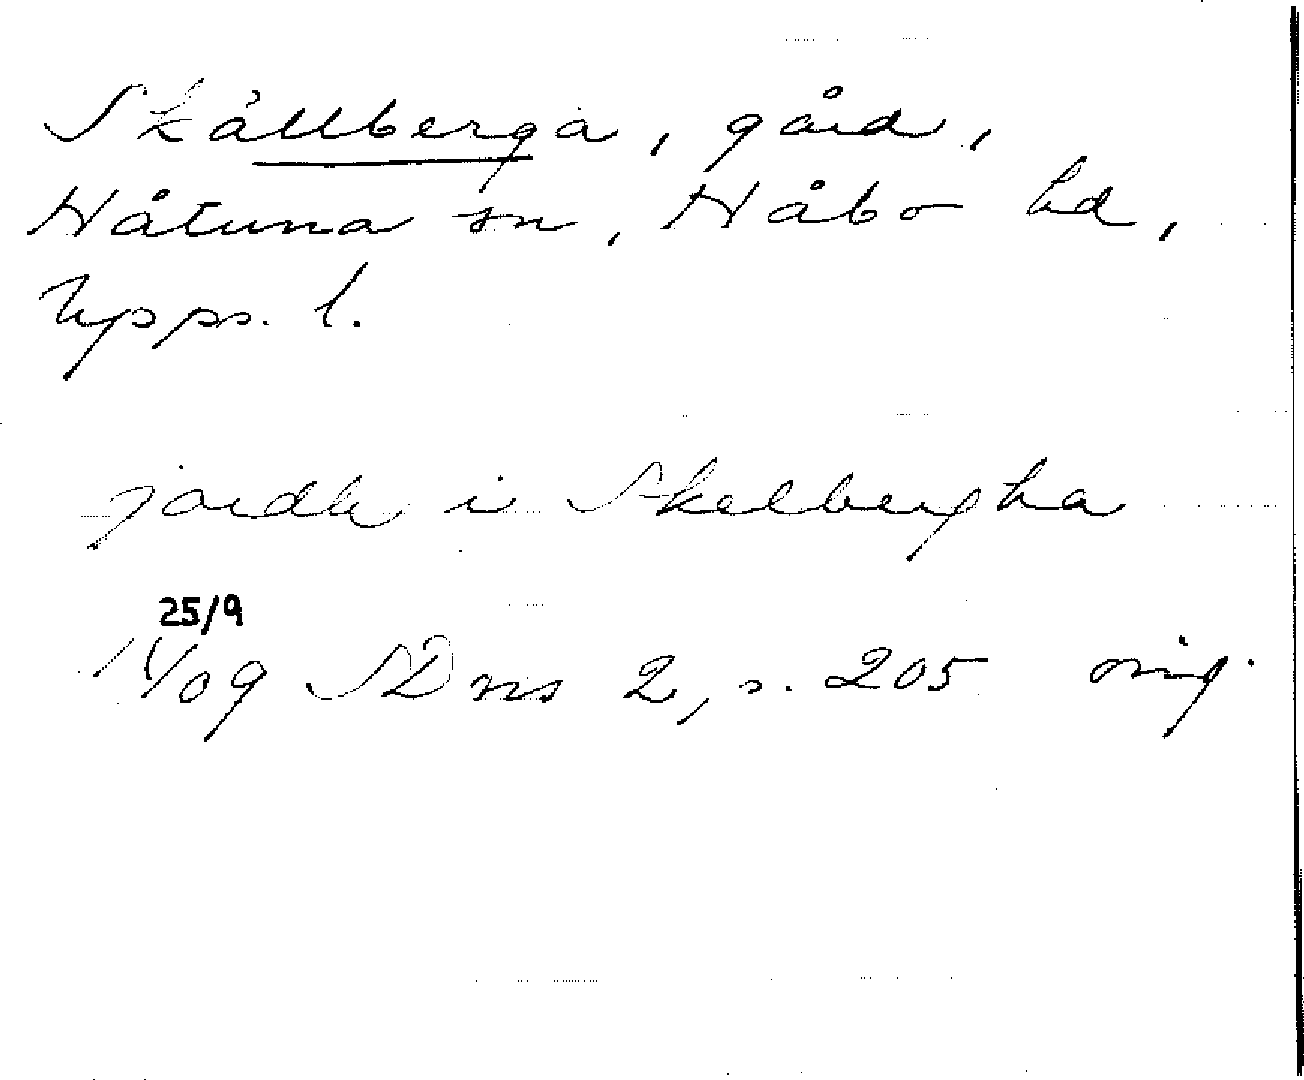 Skållberga, gård,
Håtuna sn, Håbo hd,
Upps. l.
jordh i Skelbergha
25/9
14/09 SD ns 2, s. 205 orig.